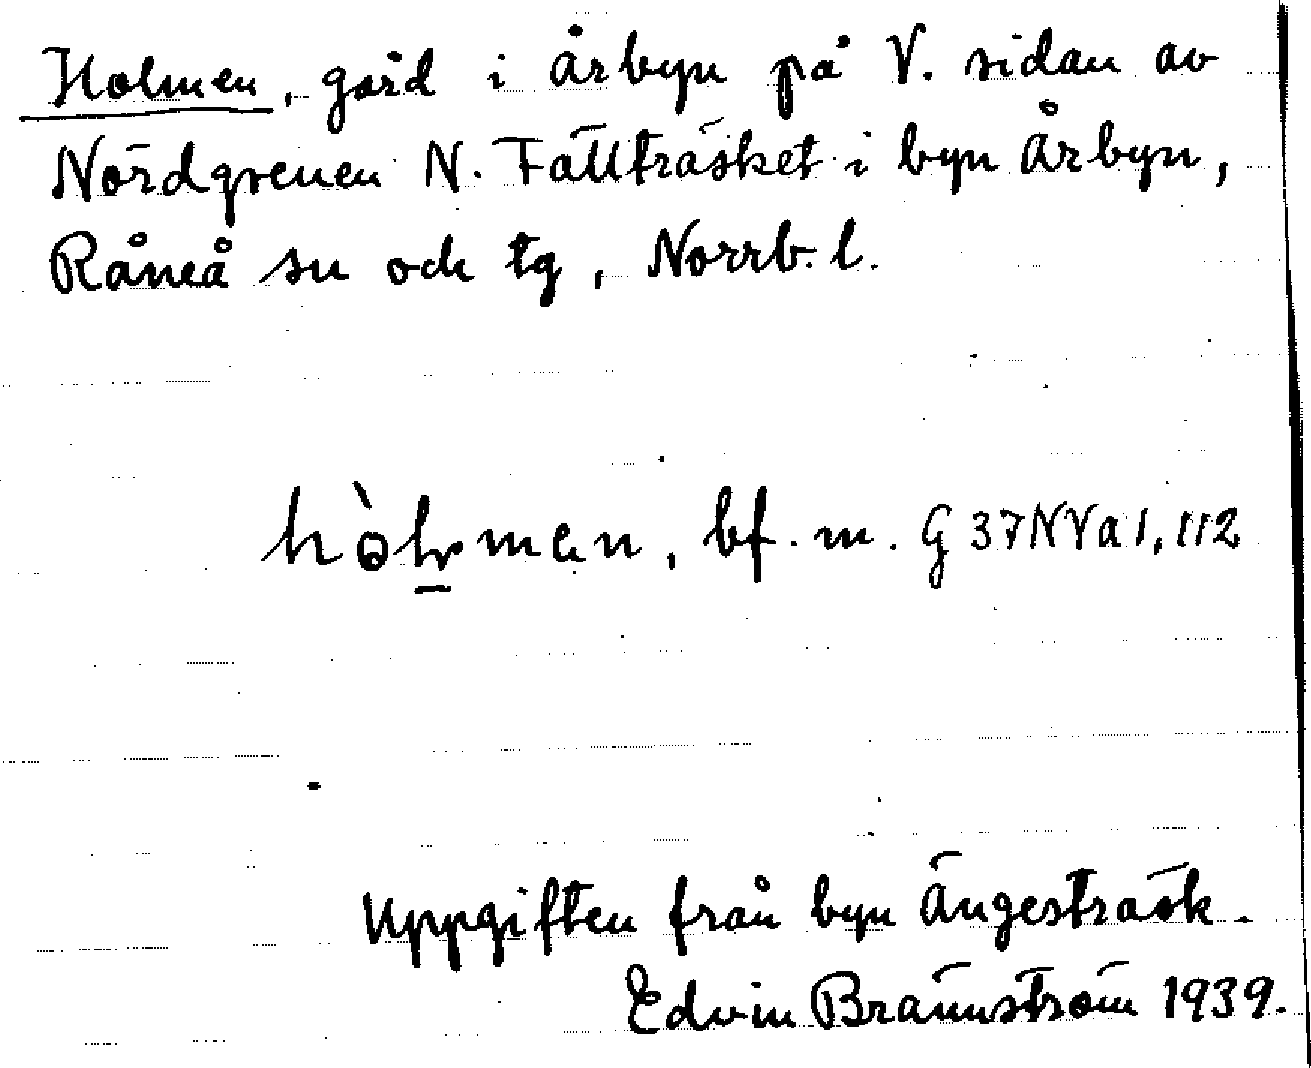 Holmen, gård i Årbyn på V. sidan av
Nördgrenen N. Fällträsket i byn Årbyn,
Råneå sn och tg, Norrb. l.
bf. m. G 37 NVa1, 112
Uppgiften från byn Ängesträsk.
Edvin Brännström 1939.